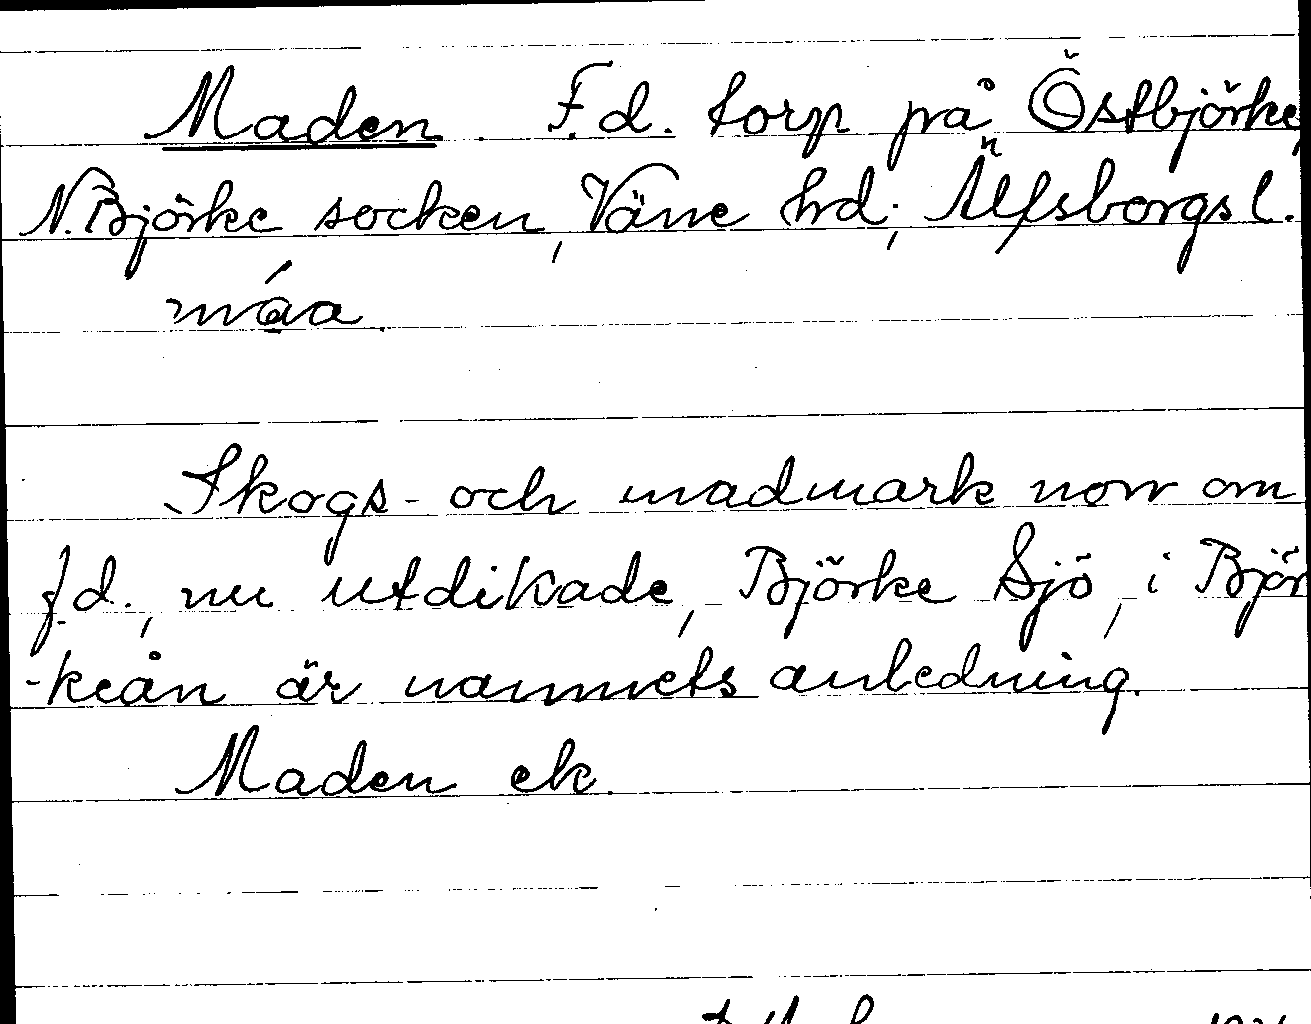 Maden. F.d. torp på Östbjörke,
N. Björke socken, Väne hd; Älfsborgs l.
máa.
Skogs- och madmark norr om
f.d., nu utdikade, Björke Sjö, i Björ
-keån är namnets anledning.
Maden ek.